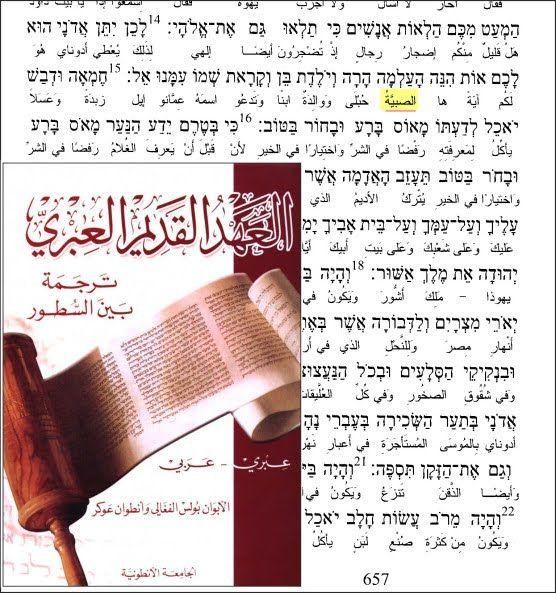 הַמְעַט מִכֶּם הַלְאוֹת אֲנָשִׁים כִּי תַלְאוּ גַּם אֶת־אֱלֹהָי: 14 לָכֵן יִתֵּן אֲדֹנָי הוּא
هل قليلٌ منكُم إضجارُ رجالٍ إذ تُضجِرُونَ أيضًا إلهي لذلك يُعطي أدوناي هو
לָכֶם אוֹת הִנֵּה הָעַלְמָה הָרָה וְיֹלֶדֶת בֵּן וְקָרָאת שְׁמוֹ עִמָּנוּ אֵל: 15 חֶמְאָה וּדְבַשׁ
لكُم آيَةً ها الصبيَّةُ حُبْلى ووالِدةٌ ابنًا وتدعُو اسمَهُ عمَّانو إيل زبدَةً وَعَسَلاً
יֹאכֵל לְדַעְתּוֹ מָאוֹס בָּרָע וּבָחוֹר בַּטּוֹב: 16 כִּי בְּטֶרֶם יֵדַע הַנַּעַר מָאֹס בָּרָע
يأكُلُ لمعرفتِهِ رفضًا في الشرِّ واختيارًا في الخيرِ لأن قَبْلَ أنْ يَعرِفَ الغُلامُ رفضًا في الشرِّ
וּבָחֹר בַּטּוֹב תֵּעָזֵב הָאֲדָמָה אֲשֶׁר
واختيارًا في الخيرِ يُتْرَكُ الأديمُ الذي
עָלֶיךָ וְעַל־עַמְּךָ וְעַל־בֵּית אָבִיךָ
عليكَ وَعَلى شعبِكَ وَعَلى بيتِ أبيكَ
יְהוּדָה אֵת מֶלֶךְ אַשּׁוּר: 18 וְהָיָה
يهوذا - مَلِكَ أشُّورَ وَيَكُونُ في
יְאֹרֵי מִצְרָיִם וְלַדְּבוֹרָה אֲשֶׁר
أنْهارِ مِصرَ وَللنَّحْلِ الذي في
וּבִנְקִיקֵי הַסְּלָעִים וּבְכֹל
وَفي شُقُوقِ الصخورِ وَفي كُلِّ
אֲדֹנָי בְּתַעַר הַשְּׂכִירָה בְּעֶבְרֵי
أدوناي بالمُوسَى المُستأجَرَةِ في أعبارِ
וְגַם אֶת־הַזָּקָן תִּסְפֶּה: 21 וְהָיָה
وَأيضًا الذَّقنَ تَنزعُ وَيَكُونُ
22 וְהָיָה מֵרֹב עֲשׂוֹת חָלָב יֹאכַל
وَيَكُونُ مِنْ كَثرَةِ صُنْعِ لَبَنٍ يأكُلُ
657
العَهدُ القَديم العِبريّ
ترجمَة
بَين السُّطور
عِبري - عَرَبي
الأبوان بولس الفغالي وأنطوان عوكر
الجامعَة الأنطونيّة